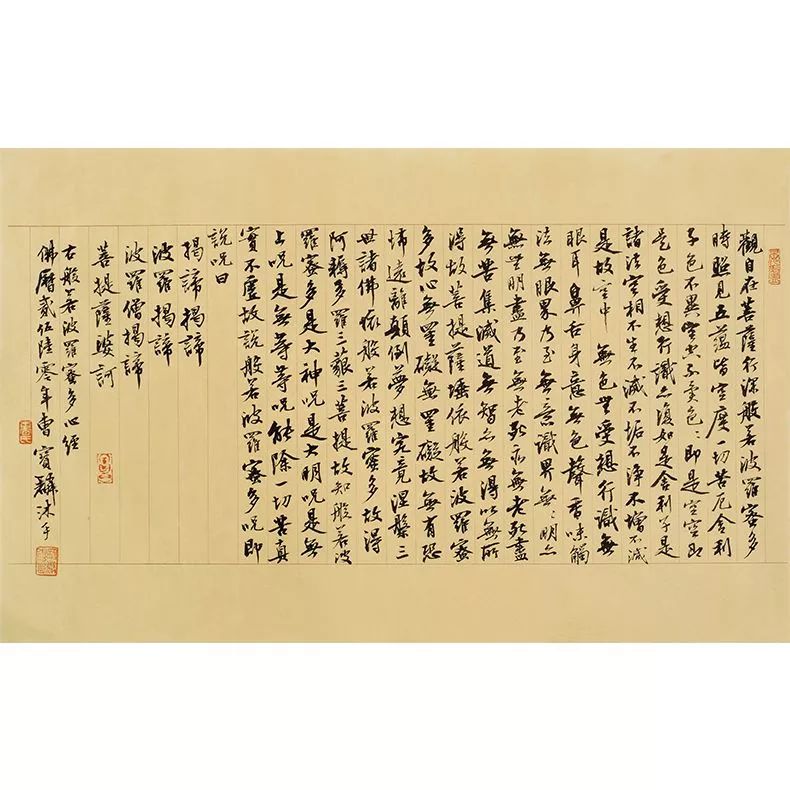 觀自在菩薩行深般若波羅蜜多
時照見五蘊皆空度一切苦厄舍利
子色不異空空不異色〻即是空空即
是色受想行識亦復如是舍利子是
諸法空相不生不滅不垢不淨不增不減
是故空中無色無受想行識無
眼耳鼻舌身意無色聲香味觸
法無眼界乃至無意識界無〻明亦
無無明盡乃至無老死亦無老死盡
無苦集滅道無智亦無得以無所
得故菩提薩埵依般若波羅蜜
多故心無罣礙無罣礙故無有恐
怖遠離顛倒夢想究竟涅槃三
世諸佛依般若波羅蜜多故得
阿耨多羅三藐三菩提故知般若波
羅蜜多是大神呪是大明呪是無
上呪是無等等呪能除一切苦真
實不虛故說般若波羅蜜多呪即
說呪曰
揭諦揭諦
波羅揭諦
波羅僧揭諦
菩提薩婆訶
右般若波羅蜜多心經
佛曆貳伍陸零年曹寶麟沐手